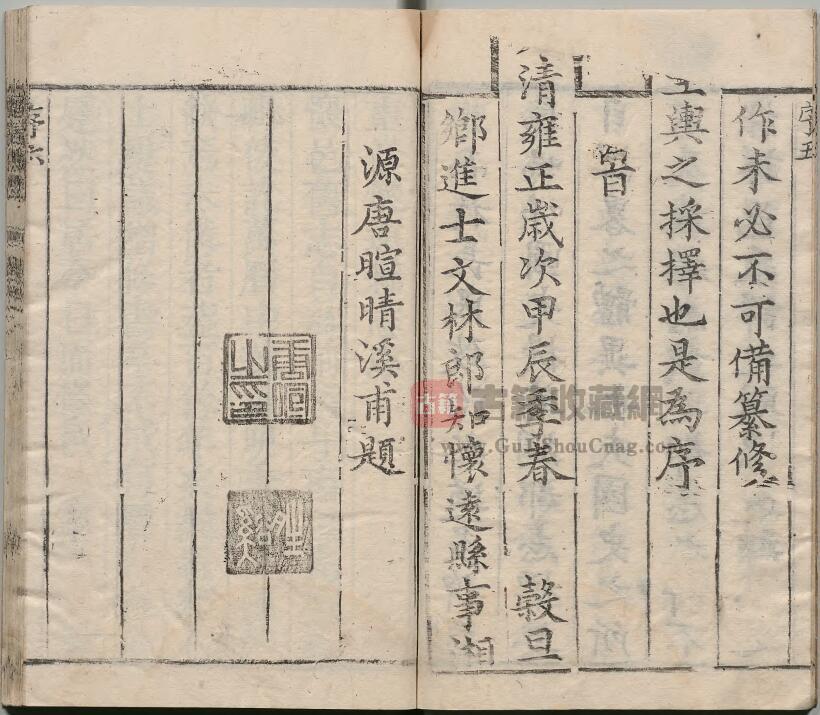 序五
作未必不可備纂修
輿之採擇也是為序
旹
清雍正歲次甲辰季春 穀旦
鄉進士文林郎知懷遠縣事湘
源唐暄晴溪甫題
序六
古籍
古籍收藏網
www.GuJiShouCang.com